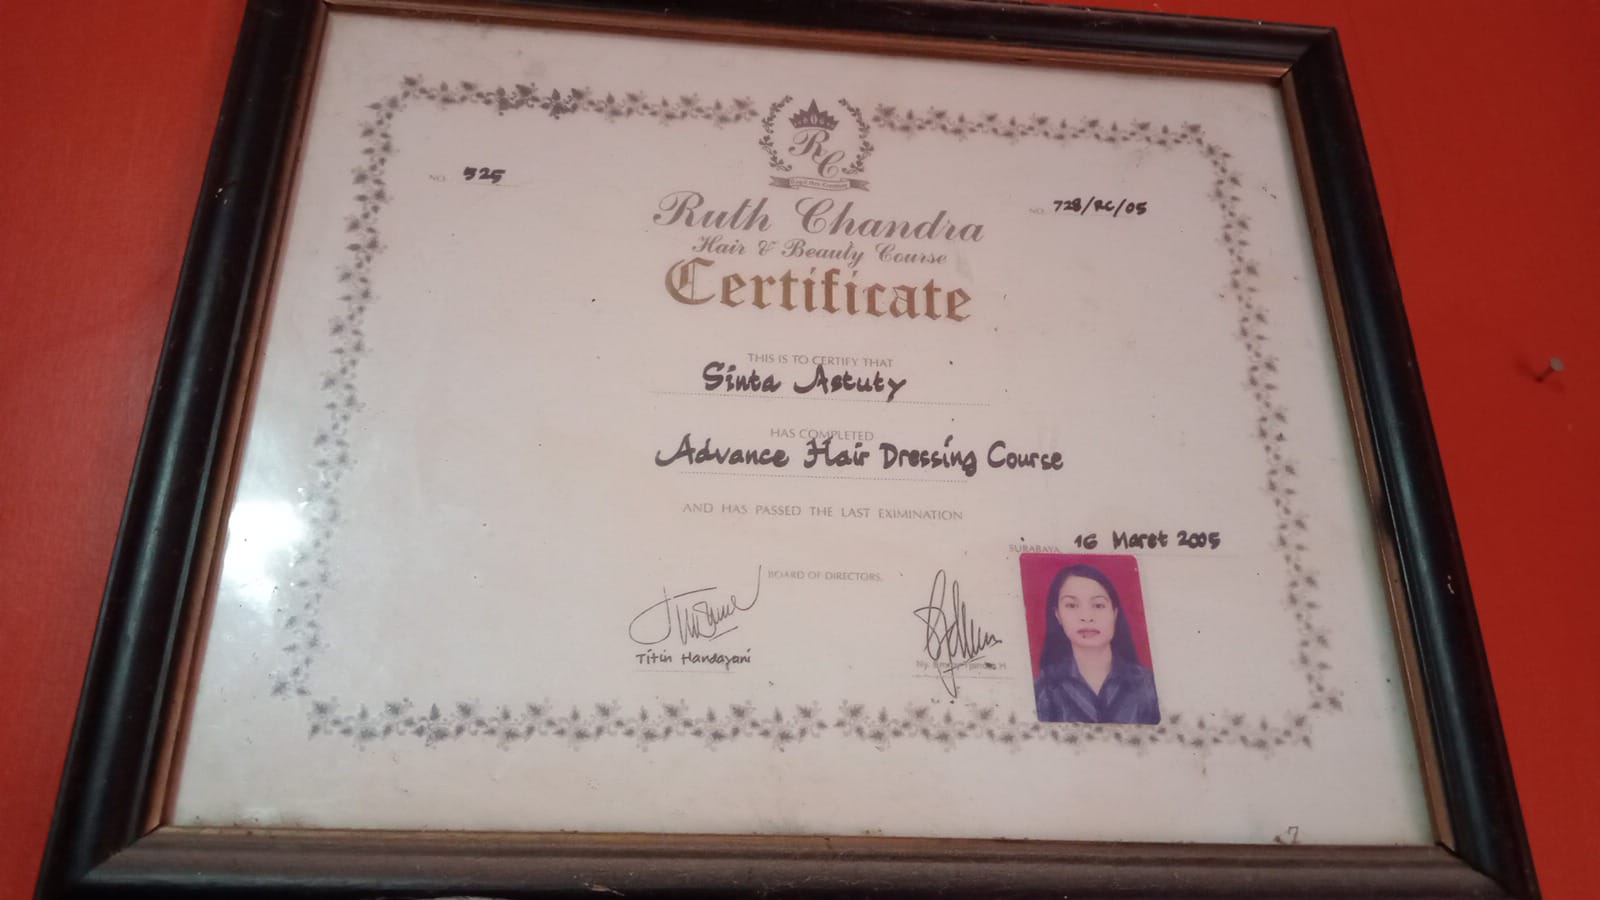 RC
NO. 525
NO. 728/RC/05
Ruth Chandra
Hair & Beauty Course
Certificate
THIS IS TO CERTIFY THAT
Sinta Astuty
HAS COMPLETED
Advance Hair Dressing Course
AND HAS PASSED THE LAST EXIMINATION
SURABAYA, 16 Maret 2005
BOARD OF DIRECTORS,
Titin Handayani
Ny.
H
7